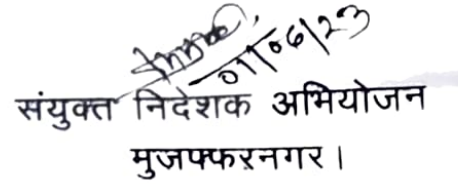 01/06/23
संयुक्त निदेशक अभियोजन
मुजफ्फरनगर।